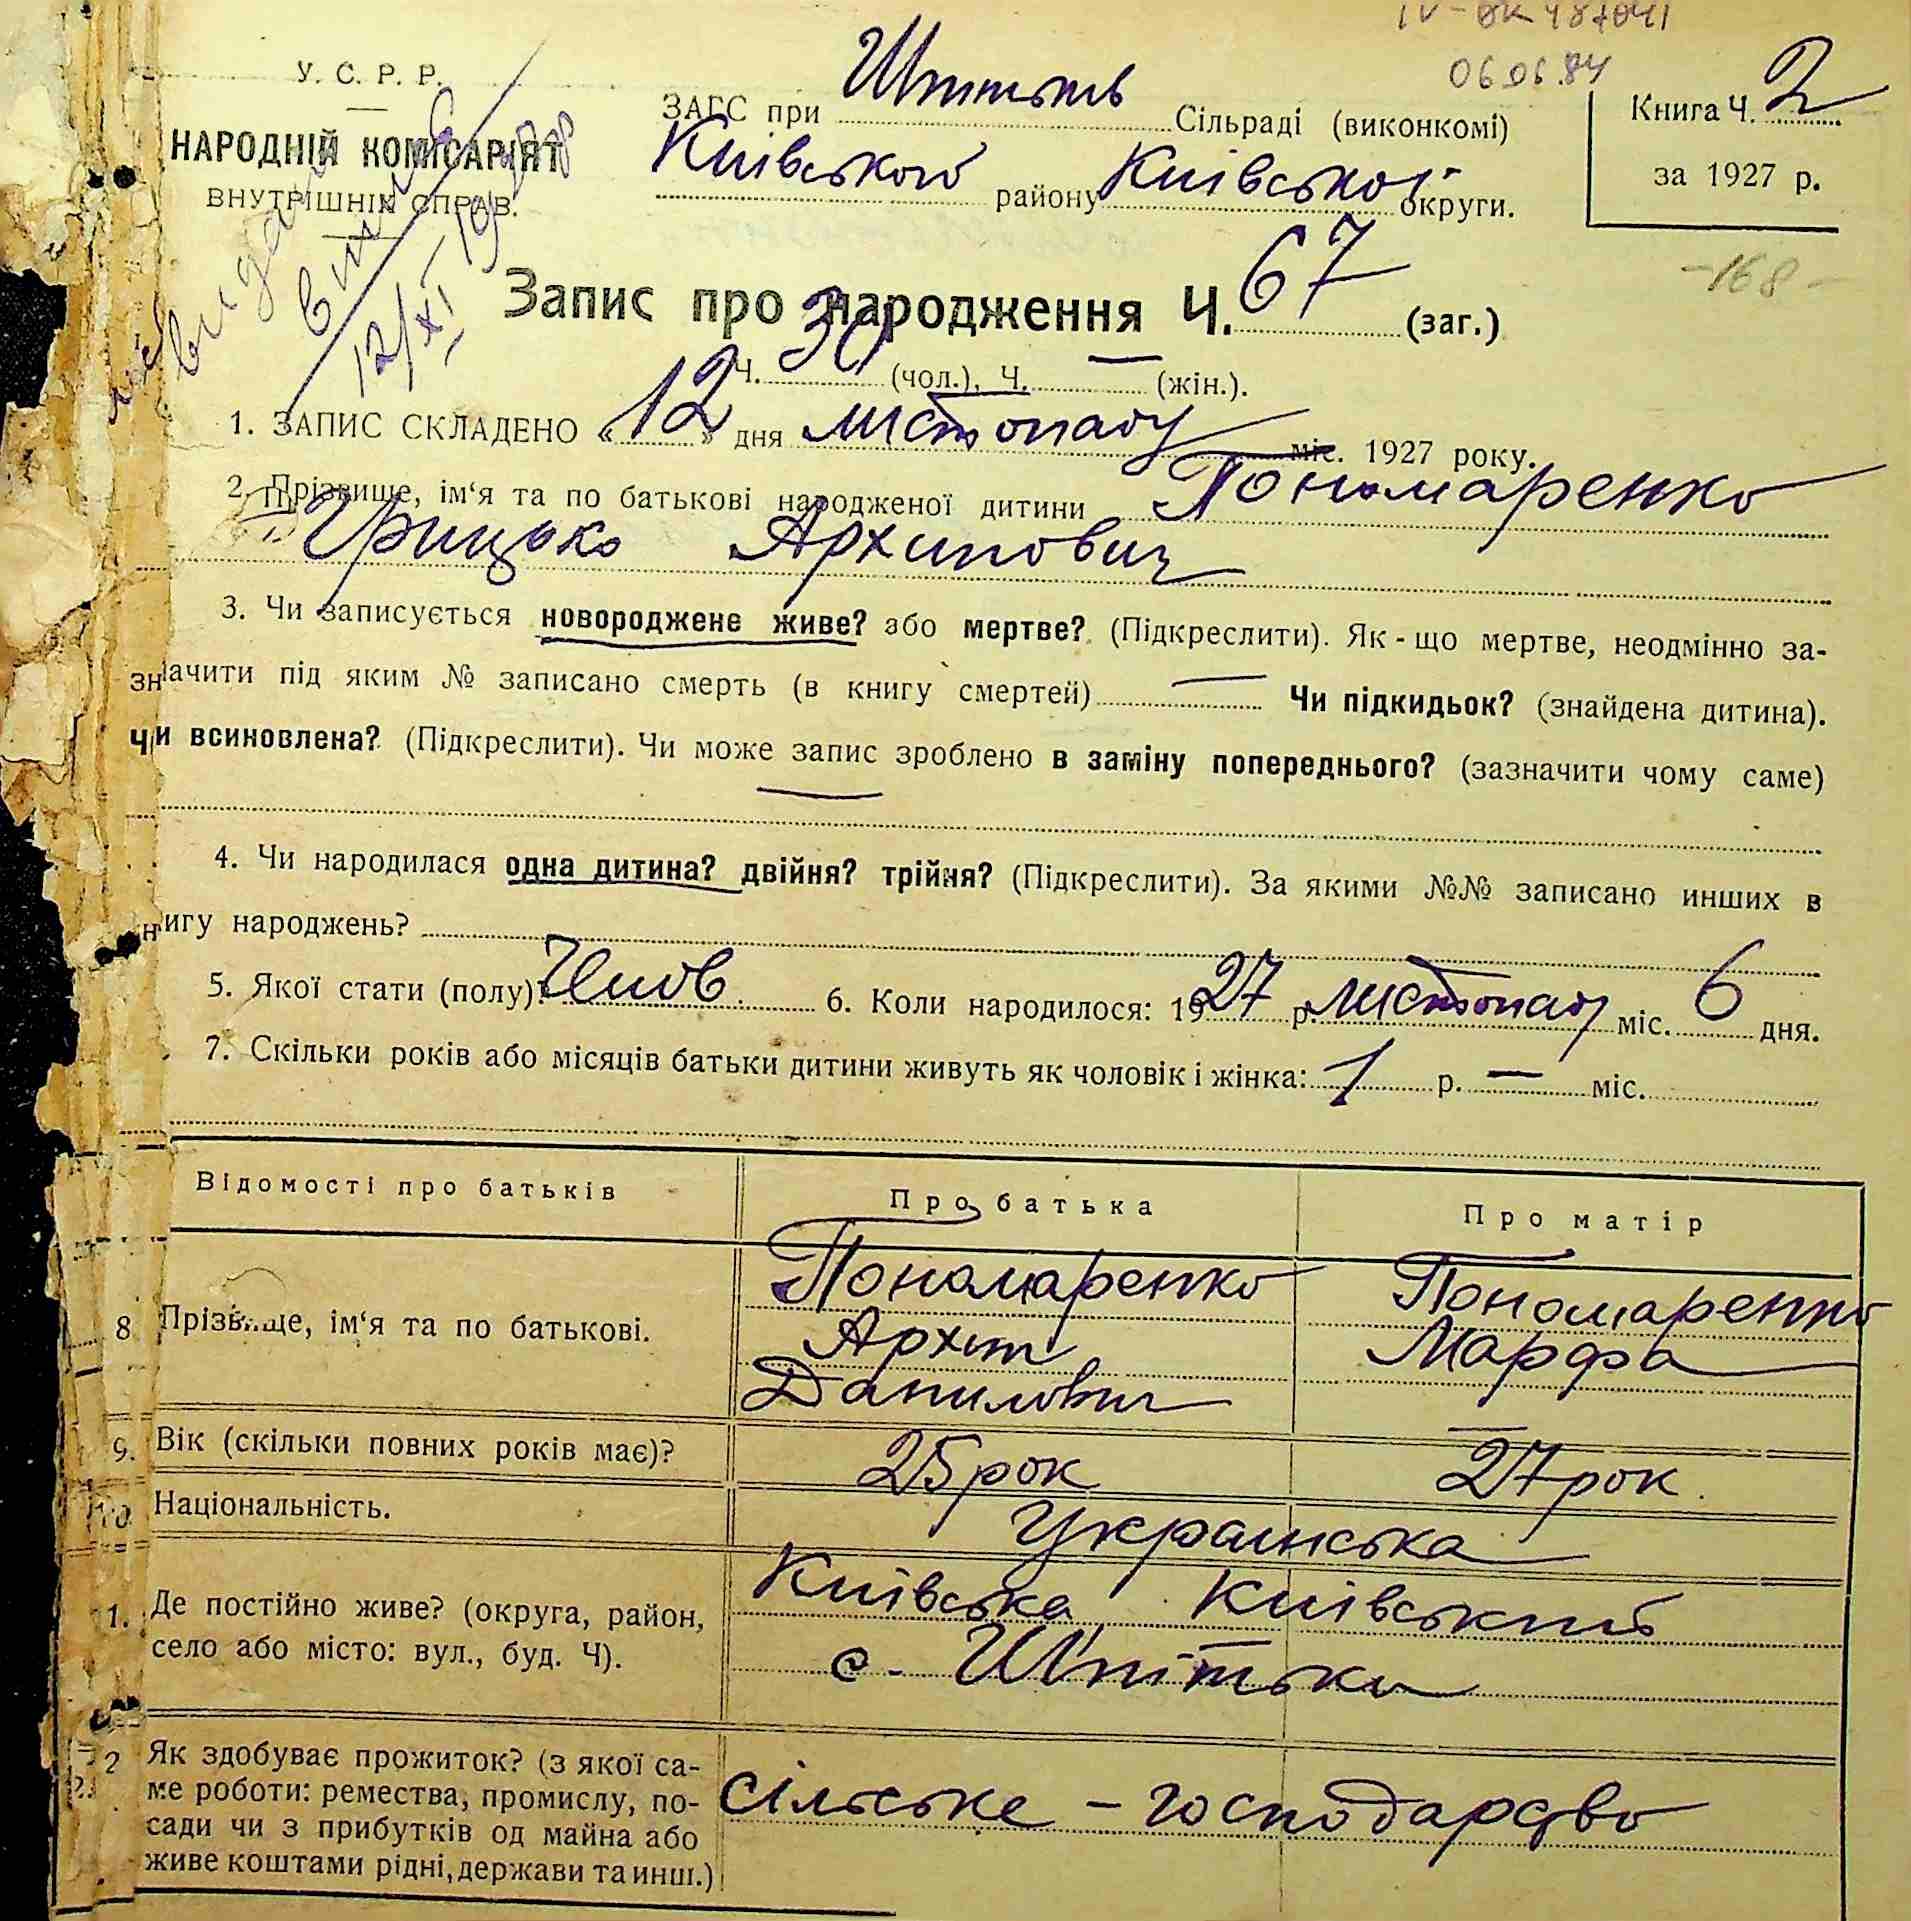 06.06.84
У. С. Р. Р.
НАРОДНІЙ КОМІСАРІЯТ
ВНУТРІШНІХ СПРАВ.
ЗАГС при Шпитьків Сільраді (виконкомі)
Київського району Київської округи.
Книга Ч. 2
за 1927 р.
видано
12/XI
-168-
Запис про народження Ч. 67 (заг.)
Ч. 30 (чол.), Ч. — (жін.).
1. ЗАПИС СКЛАДЕНО « 12 » дня листопаду міс. 1927 року.
2. Прізвище, ім‘я та по батькові народженої дитини Пономаренко
Грицько Архипович
3. Чи записується новороджене живе? або мертве? (Підкреслити). Як-що мертве, неодмінно за-
значити під яким № записано смерть (в книгу смертей) — Чи підкидьок? (знайдена дитина).
чи всиновлена? (Підкреслити). Чи може запис зроблено в заміну попереднього? (зазначити чому саме)
—
4. Чи народилася одна дитина? двійня? трійня? (Підкреслити). За якими №№ записано инших в
нигу народжень?
5. Якої стати (полу): Чолов. 6. Коли народилося: 1927 р. листопаду міс. 6 дня.
7. Скільки років або місяців батьки дитини живуть як чоловік і жінка: 1 р. — міс.
Відомості про батьків Про батька Про матір
8 Прізвище, ім‘я та по батькові. Пономаренко Пономаренко
Архип Марфа
Данилович —
9. Вік (скільки повних років має)? 25 рок 27 рок.
10. Національність. Українська
1. Де постійно живе? (округа, район, Київська Київський
село або місто: вул., буд. Ч). с. Шпітьки
2 Як здобуває прожиток? (з якої са-
ме роботи: ремества, промислу, по- сільське - господарство
сади чи з прибутків од майна або
живе коштами рідні, держави та инш.)